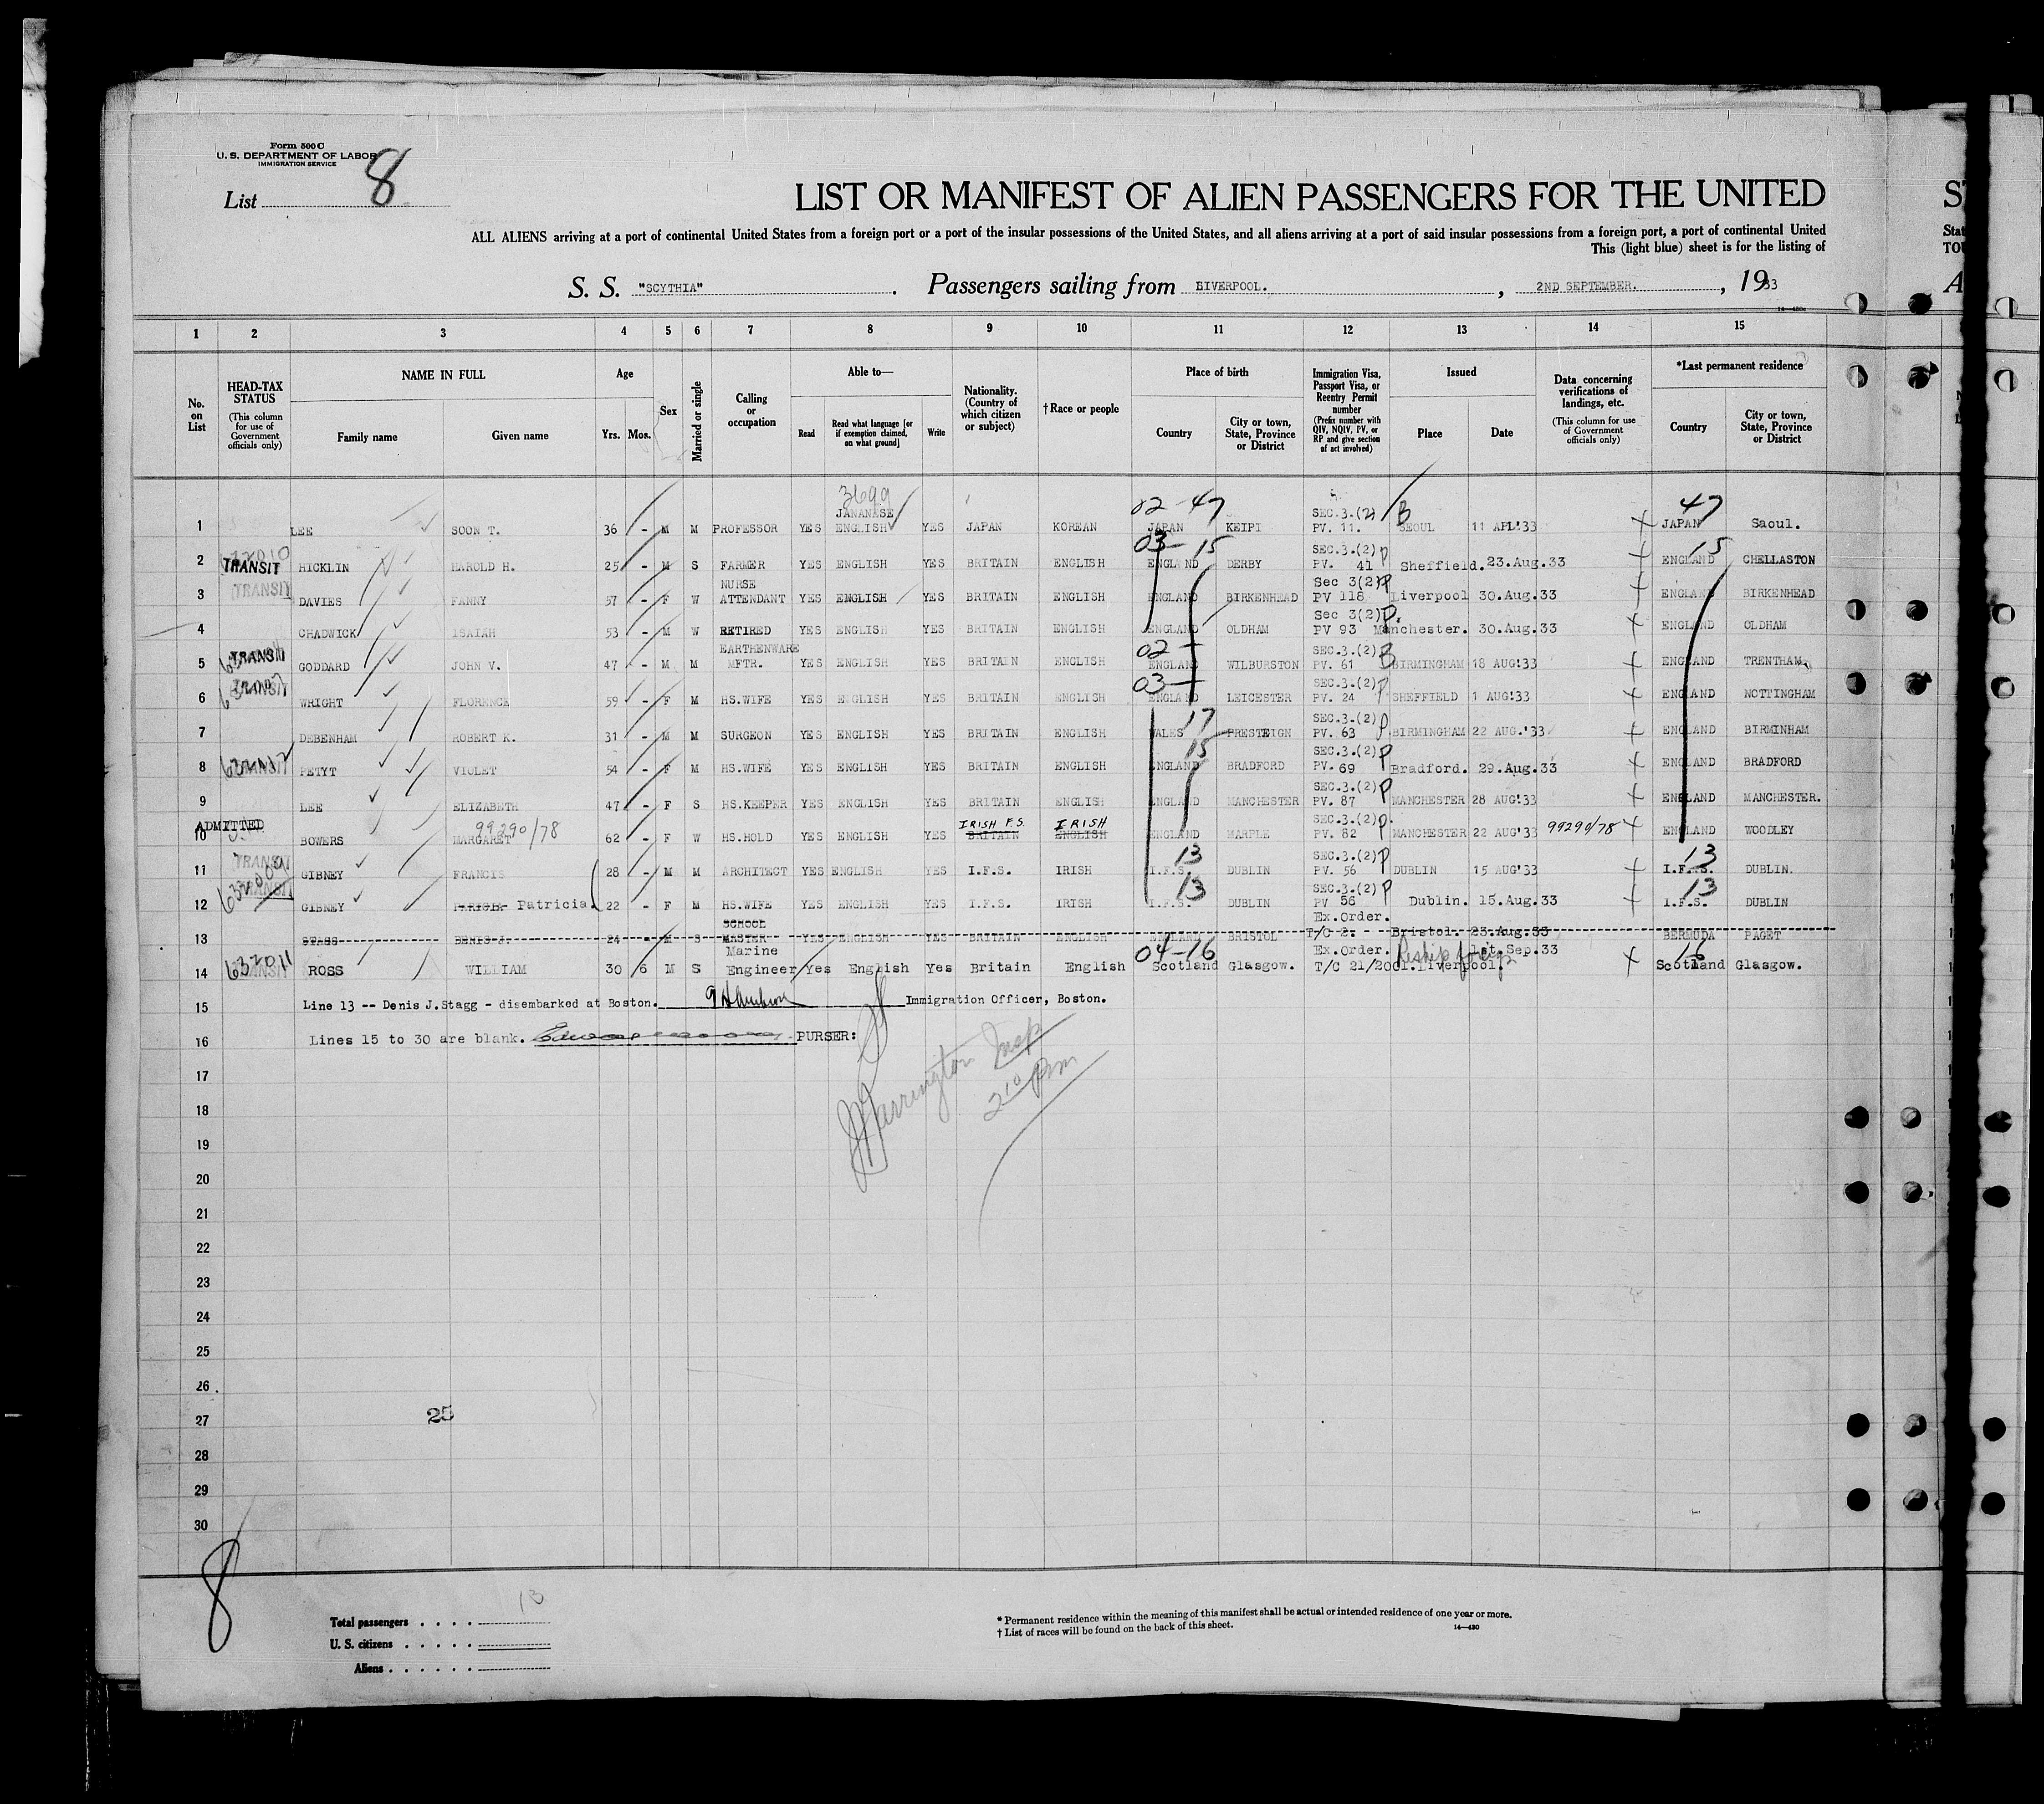 Form 500 C
U. S. DEPARTMENT OF LABOR
IMMIGRATION SERVICE
List 8
LIST OR MANIFEST OF ALIEN PASSENGERS FOR THE UNITED
ALL ALIENS arriving at a port of continental United States from a foreign port or a port of the insular possessions of the United States, and all aliens arriving at a port of said insular possessions from a foreign port, a port of continental United
This (light blue) sheet is for the listing of
S. S. "SCYTHIA" . Passengers sailing from LIVERPOOL. , 2ND SEPTEMBER. , 1933
1 2 3 4 5 6 7 8 9 10 11 12 13 14 15
No. on List
HEAD-TAX STATUS (This column for use of Government officials only)
NAME IN FULL Family name Given name
Age Yrs. Mos.
Sex
Married or single
Calling or occupation
Able to— Read Read what language [or if exemption claimed, on what ground] Write
Nationality. (Country of which citizen or subject)
†Race or people
Place of birth Country City or town, State, Province or District
Immigration Visa, Passport Visa, or Reentry Permit number (Prefix number with QIV, NQIV, PV, or RP and give section of act involved)
Issued Place Date
Data concerning verifications of landings, etc. (This column for use of Government officials only)
*Last permanent residence Country City or town, State, Province or District
3699 02-47 47
JANANESE SEC.3.(2) B
1 LEE SOON T. 36 - M M PROFESSOR YES ENGLISH YES JAPAN KOREAN JAPAN KEIPI PV. 11. SEOUL 11 APL'33 X JAPAN Saoul.
03-15 15
SEC.3.(2) P
2 TRANSIT HICKLIN HAROLD H. 25 - M S FARMER YES ENGLISH YES BRITAIN ENGLISH ENGLAND DERBY PV. 41 Sheffield. 23.Aug.33 X ENGLAND CHELLASTON
NURSE Sec 3(2) P
3 TRANSIT DAVIES FANNY 57 - F W ATTENDANT YES ENGLISH YES BRITAIN ENGLISH ENGLAND BIRKENHEAD PV 118 Liverpool 30.Aug.33 X ENGLAND BIRKENHEAD
Sec 3(2) P.
4 CHADWICK ISAIAH 53 - M W RETIRED YES ENGLISH YES BRITAIN ENGLISH ENGLAND OLDHAM PV 93 Manchester. 30.Aug.33 X ENGLAND OLDHAM
EARTHENWARE 02- SEC.3.(2) B
5 TRANSIT GODDARD JOHN V. 47 - M M MFTR. YES ENGLISH YES BRITAIN ENGLISH ENGLAND WILBURSTON PV. 61 BIRMINGHAM 18 AUG'33 X ENGLAND TRENTHAM
03- SEC.3.(2) P
6 TRANSIT WRIGHT FLORENCE 59 - F M HS.WIFE YES ENGLISH YES BRITAIN ENGLISH ENGLAND LEICESTER PV. 24 SHEFFIELD 1 AUG'33 X ENGLAND NOTTINGHAM
17 SEC.3.(2) P
7 DEBENHAM ROBERT K. 31 - M M SURGEON YES ENGLISH YES BRITAIN ENGLISH WALES PRESTEIGN PV. 63 BIRMINGHAM 22 AUG.'33 X ENGLAND BIRMINHAM
15 SEC.3.(2) P
8 TRANSIT PETYT VIOLET 54 - F M HS.WIFE YES ENGLISH YES BRITAIN ENGLISH ENGLAND BRADFORD PV. 69 Bradford. 29.Aug.33 X ENGLAND BRADFORD
SEC.3.(2) P
9 LEE ELIZABETH 47 - F S HS.KEEPER YES ENGLISH YES BRITAIN ENGLISH ENGLAND MANCHESTER PV. 87 MANCHESTER 28 AUG'33 X ENGLAND MANCHESTER.
ADMITTED 99290/78 IRISH F.S. IRISH SEC.3.(2) P.
10 BOWERS MARGARET 62 - F W HS.HOLD YES ENGLISH YES BRITAIN ENGLISH ENGLAND MARPLE PV. 82 MANCHESTER 22 AUG'33 99290/78 X ENGLAND WOODLEY
13 SEC.3.(2) P 13
11 TRANSIT GIBNEY FRANCIS 28 - M M ARCHITECT YES ENGLISH YES I.F.S. IRISH I.F.S. DUBLIN PV. 56 DUBLIN 15 AUG'33 X I.F.S. DUBLIN.
632009 TRANSIT 13 SEC.3.(2) P 13
12 GIBNEY Patricia. 22 - F M HS.WIFE YES ENGLISH YES I.F.S. IRISH I.F.S. DUBLIN PV 56 Dublin. 15.Aug.33 X I.F.S. DUBLIN
SCHOOL Ex.Order.
13 STAGG DENIS J. 24 - M S MASTER YES ENGLISH YES BRITAIN ENGLISH ENGLAND BRISTOL T/C 2. Bristol. 23.Aug.33 BERMUDA PAGET
Marine 04-16 Ex.Order. 1st.Sep.33 16
14 632011 TRANSIT ROSS WILLIAM 30 6 M S Engineer Yes English Yes Britain English Scotland Glasgow. T/C 21/2001. Liverpool. X Scotland Glasgow.
15 Line 13 -- Denis J.Stagg - disembarked at Boston. Immigration Officer, Boston.
16 Lines 15 to 30 are blank. PURSER:
Warrington Insp
2 10 PM
17
18
19
20
21
22
23
24
25
26
27
25
28
29
30
8
Total passengers . . . . 13
U. S. citizens . . . . .
Aliens . . . . . .
* Permanent residence within the meaning of this manifest shall be actual or intended residence of one year or more.
† List of races will be found on the back of this sheet.
14—430